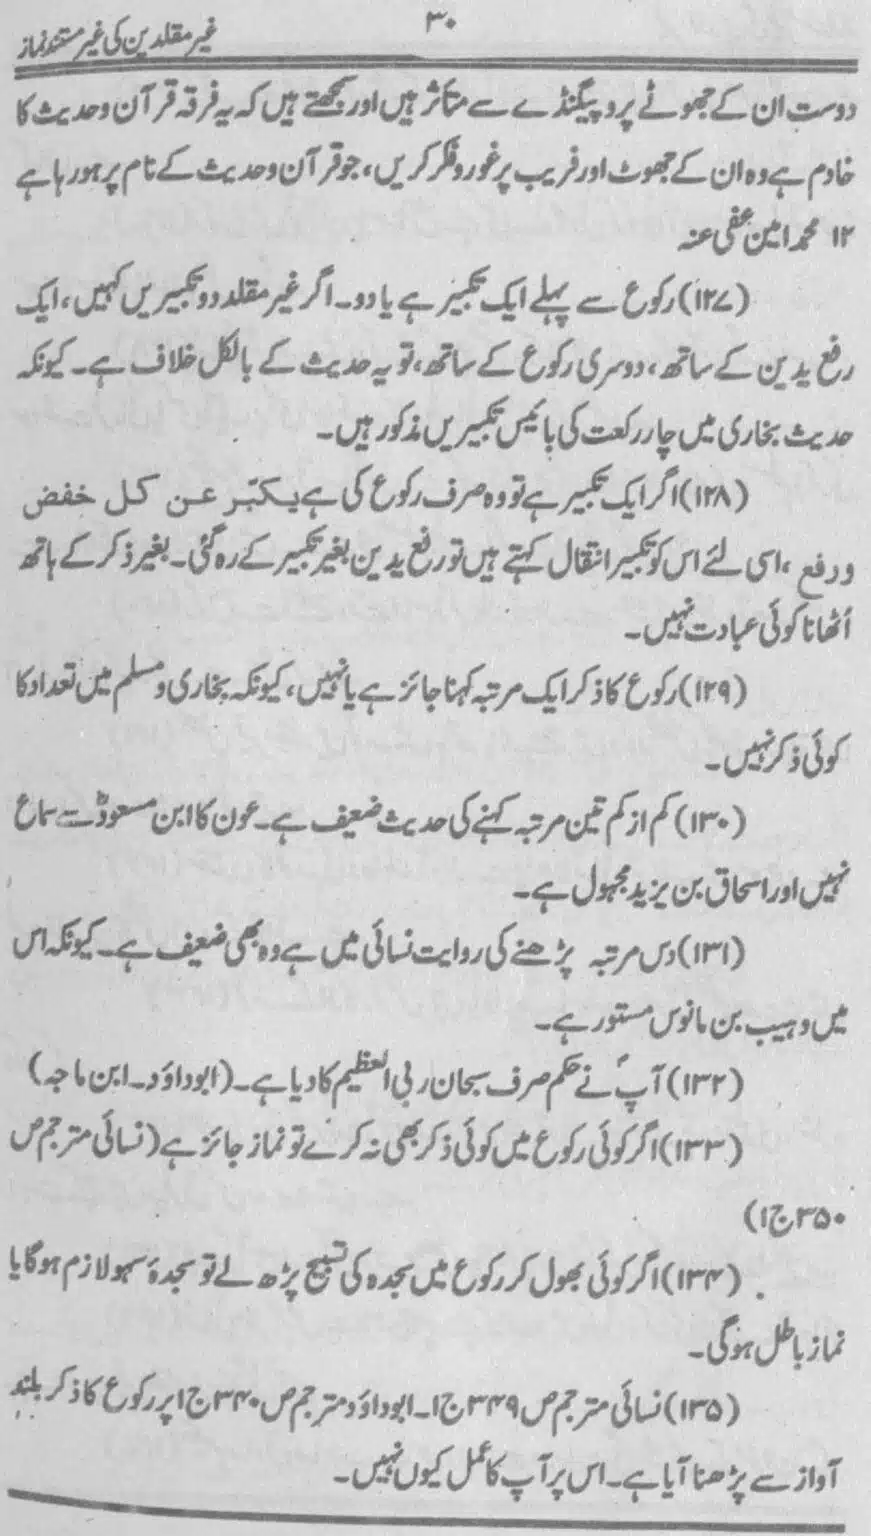 ۳۰
غیر مقلدین کی غیر مستند نماز
دوست ان کے جھوٹے پروپیگنڈے سے متأثر ہیں اور سمجھتے ہیں کہ یہ فرقہ قرآن وحدیث کا
خادم ہے وہ ان کے جھوٹ اور فریب پر غور وفکر کریں، جو قرآن وحدیث کے نام پر ہورہا ہے
۱۲ محمد امین عفی عنہ
(۱۲۷) رکوع سے پہلے ایک تکبیر ہے یا دو۔ اگر غیر مقلد دو تکبیریں کہیں، ایک
رفع یدین کے ساتھ، دوسری رکوع کے ساتھ، تو یہ حدیث کے بالکل خلاف ہے۔ کیونکہ
حدیث بخاری میں چار رکعت کی بائیس تکبیریں مذکور ہیں۔
(۱۲۸) اگر ایک تکبیر ہے تو وہ صرف رکوع کی ہے یکبّر عن کل خفض
ورفع ،اسی لئے اس کو تکبیر انتقال کہتے ہیں تو رفع یدین بغیر تکبیر کے رہ گئی۔ بغیر ذکر کے ہاتھ
اُٹھانا کوئی عبادت نہیں۔
(۱۲۹) رکوع کا ذکر ایک مرتبہ کہنا جائز ہے یا نہیں، کیونکہ بخاری ومسلم میں تعداد کا
کوئی ذکر نہیں۔
(۱۳۰) کم از کم تین مرتبہ کہنے کی حدیث ضعیف ہے۔ عون کا ابن مسعودؓ سے سماع
نہیں اور اسحاق بن یزید مجہول ہے۔
(۱۳۱) دس مرتبہ پڑھنے کی روایت نسائی میں ہے وہ بھی ضعیف ہے۔ کیونکہ اس
میں وہیب بن مانوس مستور ہے۔
(۱۳۲) آپؐ نے حکم صرف سبحان ربی العظیم کا دیا ہے۔ (ابوداؤد۔ ابن ماجہ)
(۱۳۳) اگر کوئی رکوع میں کوئی ذکر بھی نہ کرے تو نماز جائز ہے (نسائی مترجم ص
۳۵۰ ج۱)
(۱۳۴) اگر کوئی بھول کر رکوع میں سجدہ کی تسبیح پڑھ لے تو سجدۂ سہو لازم ہوگا یا
نماز باطل ہوگی۔
(۱۳۵) نسائی مترجم ص ۳۴۹ ج۱۔ ابوداؤد مترجم ص ۳۴۰ ج۱ پر رکوع کا ذکر بلند
آواز سے پڑھنا آیا ہے۔ اس پر آپ کا عمل کیوں نہیں۔